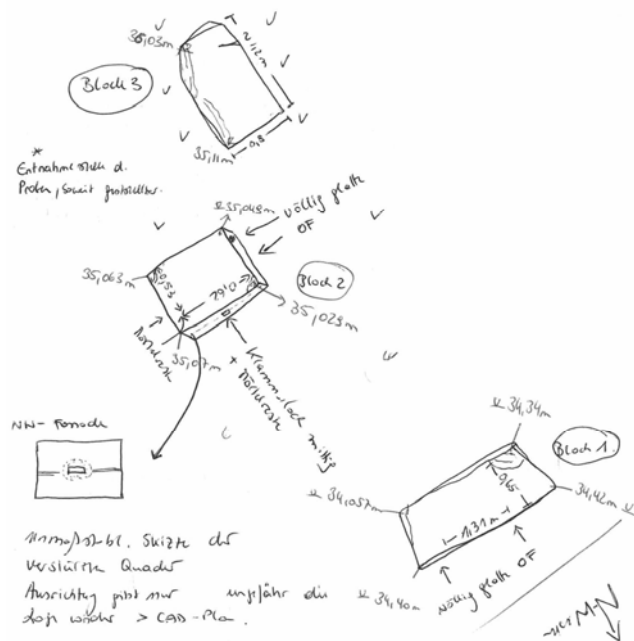 35,03m
~1,12m
Block 3
35,11m
0,8
*
Entnahmestelle d.
Proben, soweit
35,048m
völlig glatte
OF
35,063m
0,53
0,62
Block 2
35,029m
Mörtelreste
35,07m
Klammerloch mittig
+ Mörtelreste
NW-Fassade
34,34m
Block 1
0,65
34,057m
1,31m
34,42m
völlig glatte OF
34,40m
Unmaßstäbl. Skizze der
verstürzten Quader
Ausrichtung gibt nur ungefähr die
Lage wieder > CAD-Plan.
N